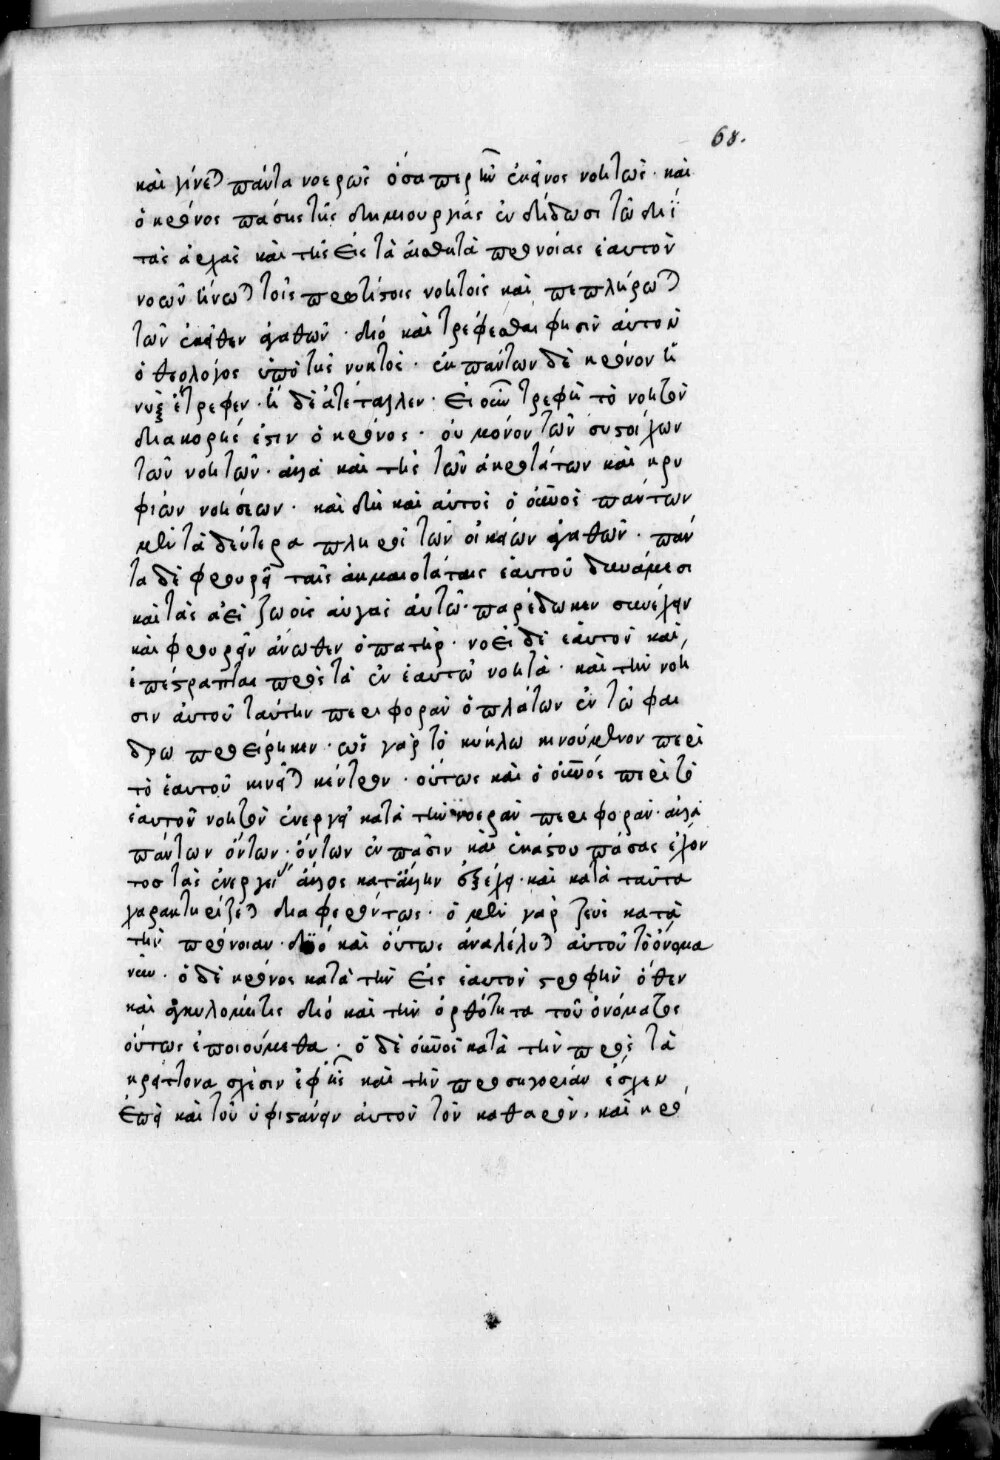 68.
καὶ γίνεται πάντα νοερῶς ὅσα περ ἦν ἐκεῖνος νοητῶς · καὶ
ὁ κρόνος πάσης τῆς δημιουργίας ἐνδίδωσι τῶ διῒ
τὰς ἀρχὰς καὶ τῆς εἰς τὰ αἰσθητὰ προνοίας ἑαυτὸν
νοῶν ἡνωται τοῖς πρωτίστοις νοητοῖς καὶ πεπλήρωται
τῶν ἐκεῖθεν ἀγαθῶν · διό καὶ τρέφεσθαι φησὶν αὐτὸν
ὁ θεολόγος ὑπὸ τῆς νυκτός · ἐκ πάντων δὲ κρόνον ἡ
νυξ ἔτρεφεν · ἡ δὲ ἀτέταλλεν · εἰ οὖν τρεφη τὸ νοητὸν
διακορής ἐστιν ὁ κρόνος · οὐ μόνον τῶν συστοίχων
τῶν νοητῶν · ἀλλὰ καὶ τῆς τῶν ἀκροτάτων καὶ κρυ
φιών νοησεων · καὶ διὰ καὶ αὐτὸς ὁ οὐρανὸς πάντων
μὲν τὰ δεύτερα πληροῖ τῶν οἰκείων ἀγαθῶν · πάν
τα δὲ φρουρεῖ ταῖς ἀκμαιοτάταις ἑαυτοῦ δυνάμεσι
καὶ τὰς ἀεὶ ζωοῖς αὐγὰς αὐτῶ · παρέδωκεν συνέχειν
καὶ φρουρεῖν ἄνωθεν ὁ πατὴρ · νοεῖ δὲ ἑαυτὸν καὶ
ἐπέστραπται πρὸς τὰ ἐν ἑαυτῶ νοητὰ · καὶ τὴν νοη
σιν αὐτοῦ ταύτην περιφορὰν ὁ πλάτων ἐν τῶ φαι
δρω προείρηκεν · ὡς γὰρ τὸ κύκλω κινούμενον περὶ
τὸ ἑαυτοῦ κινεῖται κέντρον · οὕτως καὶ ὁ οὐρανός περὶ τὸ
ἑαυτοῦ νοητὸν ἐνεργεῖ κατὰ τὴν νοερὰν περιφορὰν · ἀλλὰ
πάντων ὄντων · ὄντων ἐν πᾶσιν καὶ ἑκάστου πάσας ἔχον
τος τὰς ἐνεργει ἄλλος κατάλλην ἐξέχει · καὶ κατὰ ταῦτα
χαρακτηρίζεται διαφερόντως · ὁ μὲν γὰρ ζεὺς κατὰ
τὴν πρόνοιαν · διό καὶ οὕτως ἀναλέλυται αὐτοῦ τὸ ὄνομα
νῦν · ὁ δὲ κρόνος κατὰ τὴν εἰς ἑαυτὸν στροφὴν ὅθεν
καὶ ἀγκυλομήτις διό καὶ τὴν ὀρθότητα τοῦ ὀνόματος
οὕτως ἐποιούμεθα · ὁ δὲ οὐρανὸς κατὰ τὴν πρὸς τὰ
κρείττονα σχέσιν ἐφ' ἧς καὶ τὴν προσηγορίαν ἔσχεν
ἐπεὶ καὶ τὸν ὑφιστάνειν αὐτὸν τὸν καθαρὸν, καὶ κρο